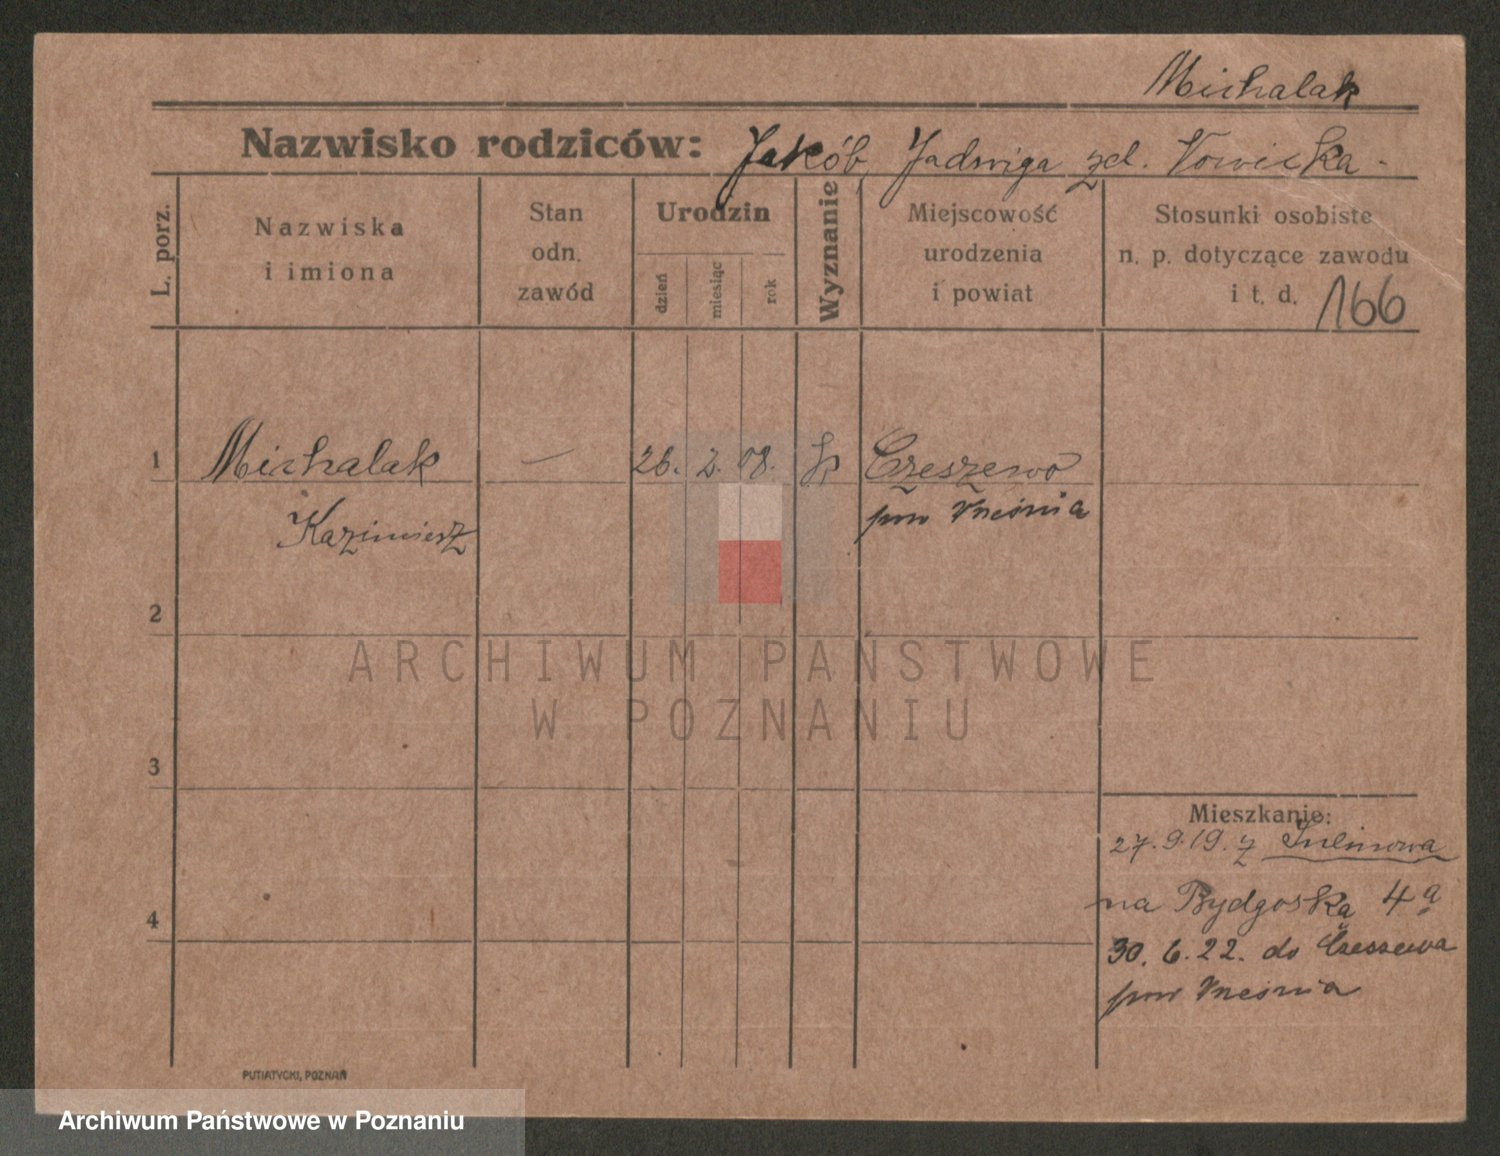 Michalak
Nazwisko rodziców: Jakób, Jadwiga zd. Nowicka.
L. porz.
Nazwiska
i imiona
Stan
odn.
zawód
Urodzin
dzień
miesiąc
rok
Wyznanie
Miejscowość
urodzenia
i powiat
Stosunki osobiste
n. p. dotyczące zawodu
i t. d. 166
1 Michalak — 26. 2. 08. k Czeszewo
Kazimierz pow Września
2
ARCHIWUM PAŃSTWOWE
W POZNANIU
3
Mieszkanie:
27.9.19. z
na Bydgoską 4a
4
30.6.22. do Czeszewa
pow Września
PUTIATYCKI, POZNAŃ
Archiwum Państwowe w Poznaniu